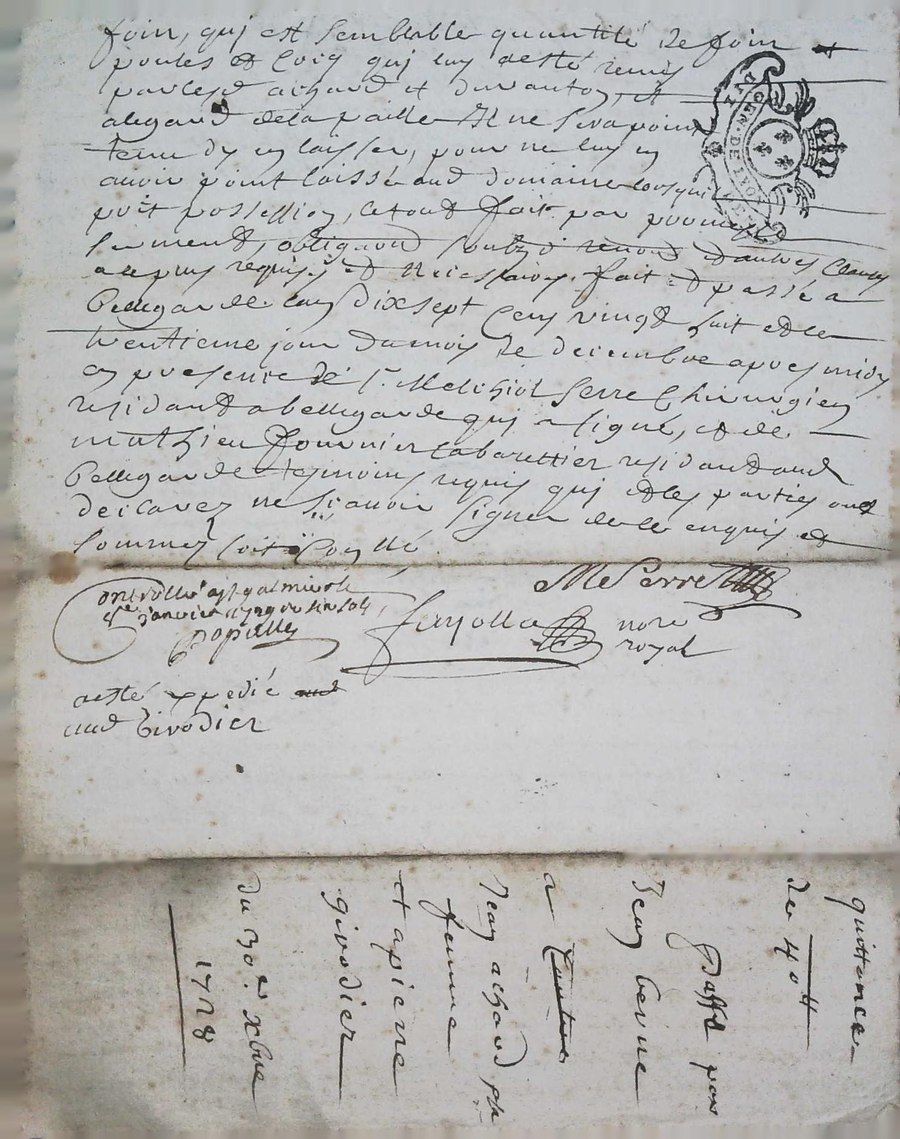 foin, qui est semblable quantité de foin
poules et Cocq qui luy aesté remis
par lesd achard et durantoy, et
alegard dela paille Il ne sera point
tenu dy en laisser, pour ne luy en
avoir point laissé aud domaine lorsquil
prit possession, Cetout fait par promes
serment, obligaon soubz et renon dautres Clauses
a ce plus requises et necessaires fait et passé a
Bellegarde lan Dixsept Cens vingt huit et le
trentieme jour du mois de decembre apres midy
en presence de sr Melchiol Serre Chirurgien
residant a bellegarde qui a signé, et de
mathieu fournier Cabarettier residant aud
Bellegarde tesmoins requis qui et les parties ont
declarez ne scavoir signer de ce enquis et
sommez soit Coollé
MSerre
Controllé a st galmier le
janvier
fayolla nore
royal
aesté expedié aud
aud Givodier
DE LYON
GEN. DE
quittance
de 40tt
Passé par
Jean berne
a
Jean achard
femme
et a piere
givodier
du 30e xbre
1728